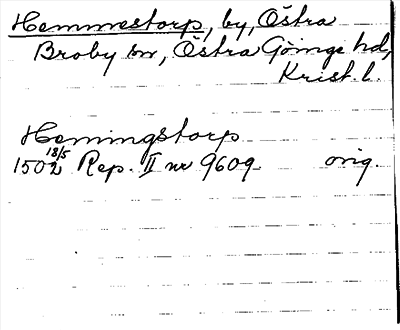 Hemmestorp, by, Östra
Broby sn, Östra Göinge hd,
Krist. l.
Hemingstorp
1502 18/5 Rep. II nr 9609 orig.